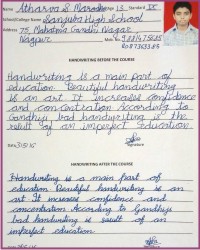 Name Atharva S. Marode Age 13 Standard IX
School/College Name Sanjuba High School
Address 75, Mahatma Gandhi Nagar
Nagpur
HANDWRITING BEFORE THE COURSE
Handwriting is a main part of
education. Beautiful handwriting
is an art. It increases confidence
and concentration. According to
Gandhiji bad handwriting is the
result of an imperfect education.
Signature
HANDWRITING AFTER THE COURSE
Handwriting is a main part of
education. Beautiful handwriting is an
art. It increases confidence and
concentration. According to Gandhiji
bad handwriting is result of an
imperfect education.